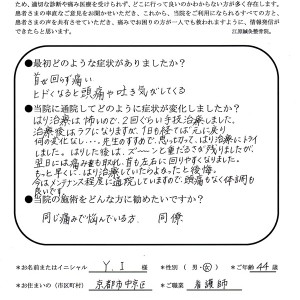 ため、適切な診断や痛み医療を受けられず、どこに行って良いのかわからない方が多く存在します。
患者さまの率直なご意見をお聞かせいただき、これから、当院をご利用になられるすべての方と、
患者さまの声を共有させていただき、痛みでお困りの方が一人でも救われますように、情報発信が
できたらと思います。
江原鍼灸整骨院。
●最初どのような症状がありましたか？
首が回らず痛い
ヒドくなると頭痛や吐き気がしてくる
●当院に通院してどのように症状が変化しましたか？
はり治療は怖いので、2回ぐらい手技治療しました。
治療後はラクになりますが、1日も経てば元に戻り
何の変化なし…。先生のすすめで、思い切って、はり治療にトライ
しました。はりした後は、ズーンと重だるさが残りましたが、
翌日には痛み重も取れ、首も左右に回りやすくなりました。
もっと早くに、はり治療していたらよかったと後悔。
今はメンテナンス程度に通院していますので、頭痛もなく体調も
良いです。
●当院の施術をどんな方に勧めたいですか？
同じ痛みで悩んでいる方、同僚
＊お名前またはイニシャル Y.I 様 ＊性別（男・女）＊ご年齢 44 歳
＊お住まいの（市区町村） 京都市中京区 ＊ご職業 看護師